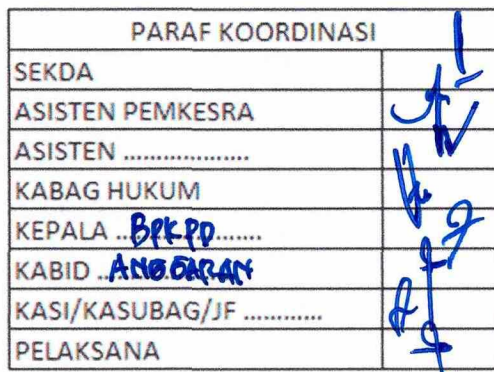 PARAF KOORDINASI
SEKDA
ASISTEN PEMKESRA
ASISTEN ...................
KABAG HUKUM
KEPALA ..BPKPD.......
KABID ..ANGGARAN
KASI/KASUBAG/JF ............
PELAKSANA